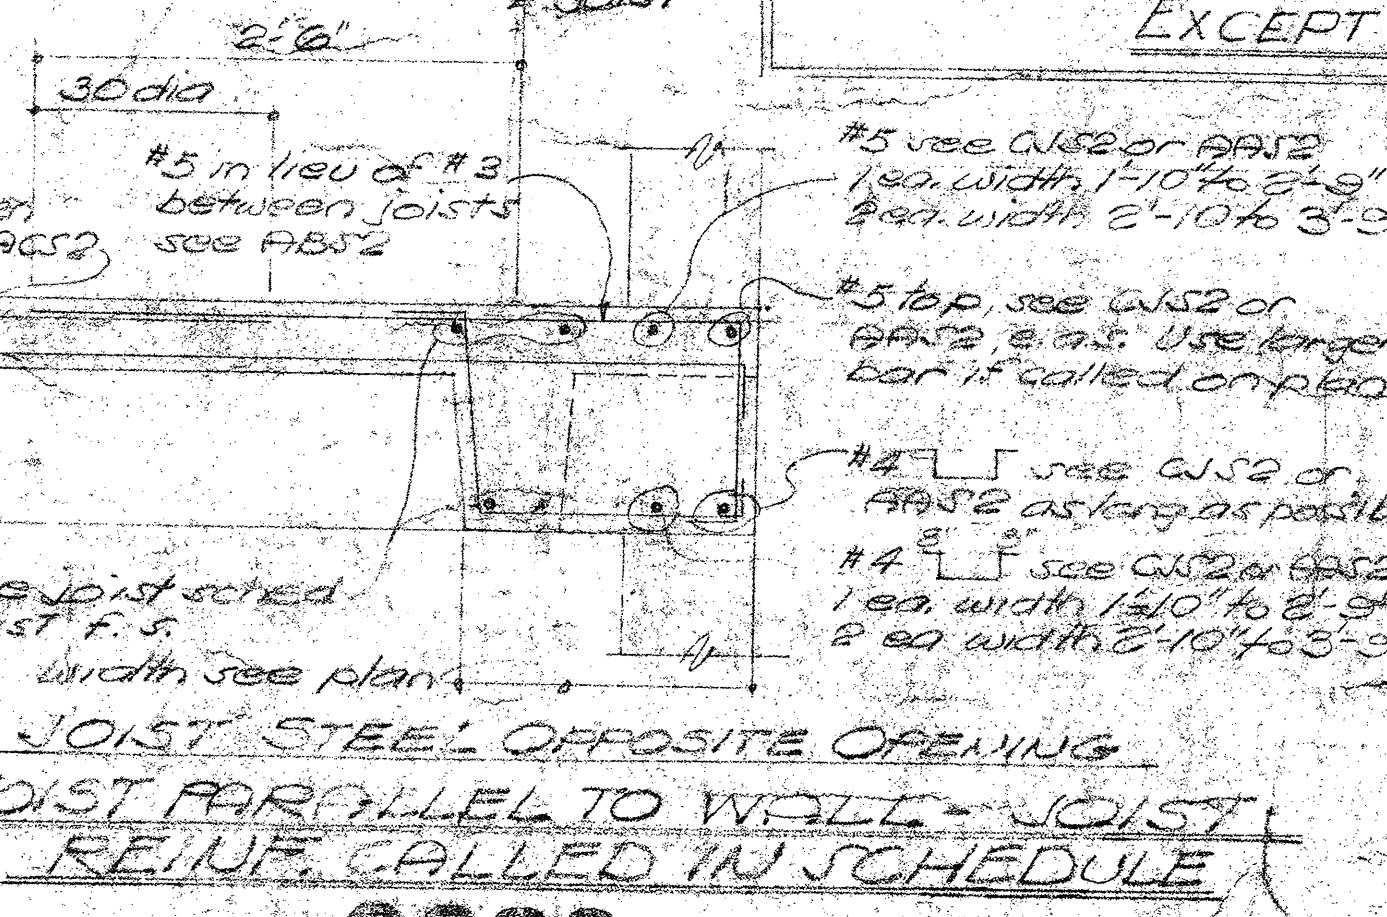 2'-6"
EXCEPT
30 dia
#5 in lieu of #3
between joists
see ABS2
ACS2
#5 see CJS2 or AAS2
1 ea. width 1'-10" to 2'-9"
2 ea. width 2'-10 to 3'-9
#5 top, see CJS2 or
AAS2, e.a.s. Use larger
bar if called on plan
#4 see CJS2 or
AAS2 as long as possib
8" 8"
#4 see CJS2 or AAS2
1 ea. width 1'-10" to 2'-9"
2 ea width 2'-10" to 3'-9
e joist sched
st f. s.
width see plan
JOIST STEEL OPPOSITE OPENING
OIST PARALLEL TO WALL - JOIST
REINF. CALLED IN SCHEDULE